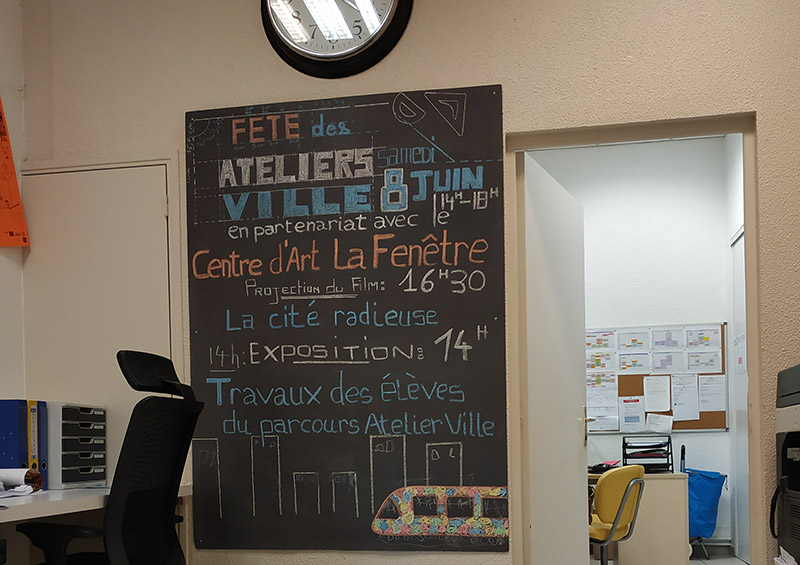 FETE des
ATELIERS Samedi
VILLE 8 JUIN
14H-18H
en partenariat avec le
Centre d'Art La Fenêtre
Projection du Film: 16H30
La cité radieuse
14h: EXPOSITION: 14H
Travaux des élèves
du parcours Atelier Ville